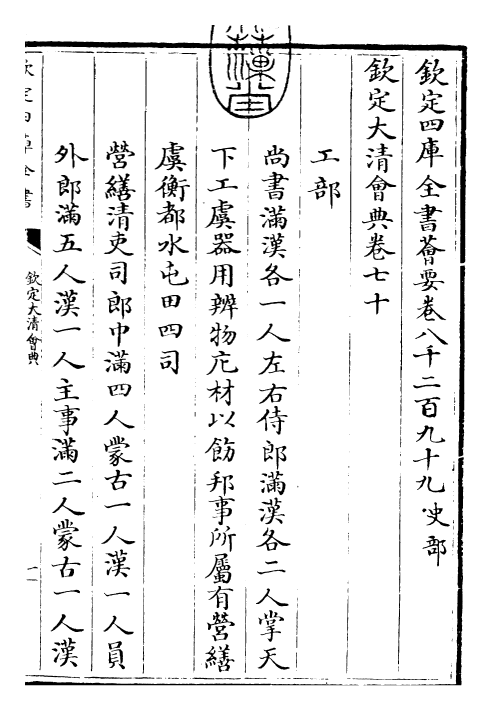 欽定四庫全書薈要卷八千二百九十九史部
欽定大清會典卷七十
工部
尚書滿漢各一人左右侍郎滿漢各二人掌天
下工虞器用辨物庀材以飭邦事所屬有營繕
虞衡都水屯田四司
營繕清吏司郎中滿四人蒙古一人漢一人員
外郎滿五人漢一人主事滿二人蒙古一人漢
欽定四庫全書
欽定大清會典
一